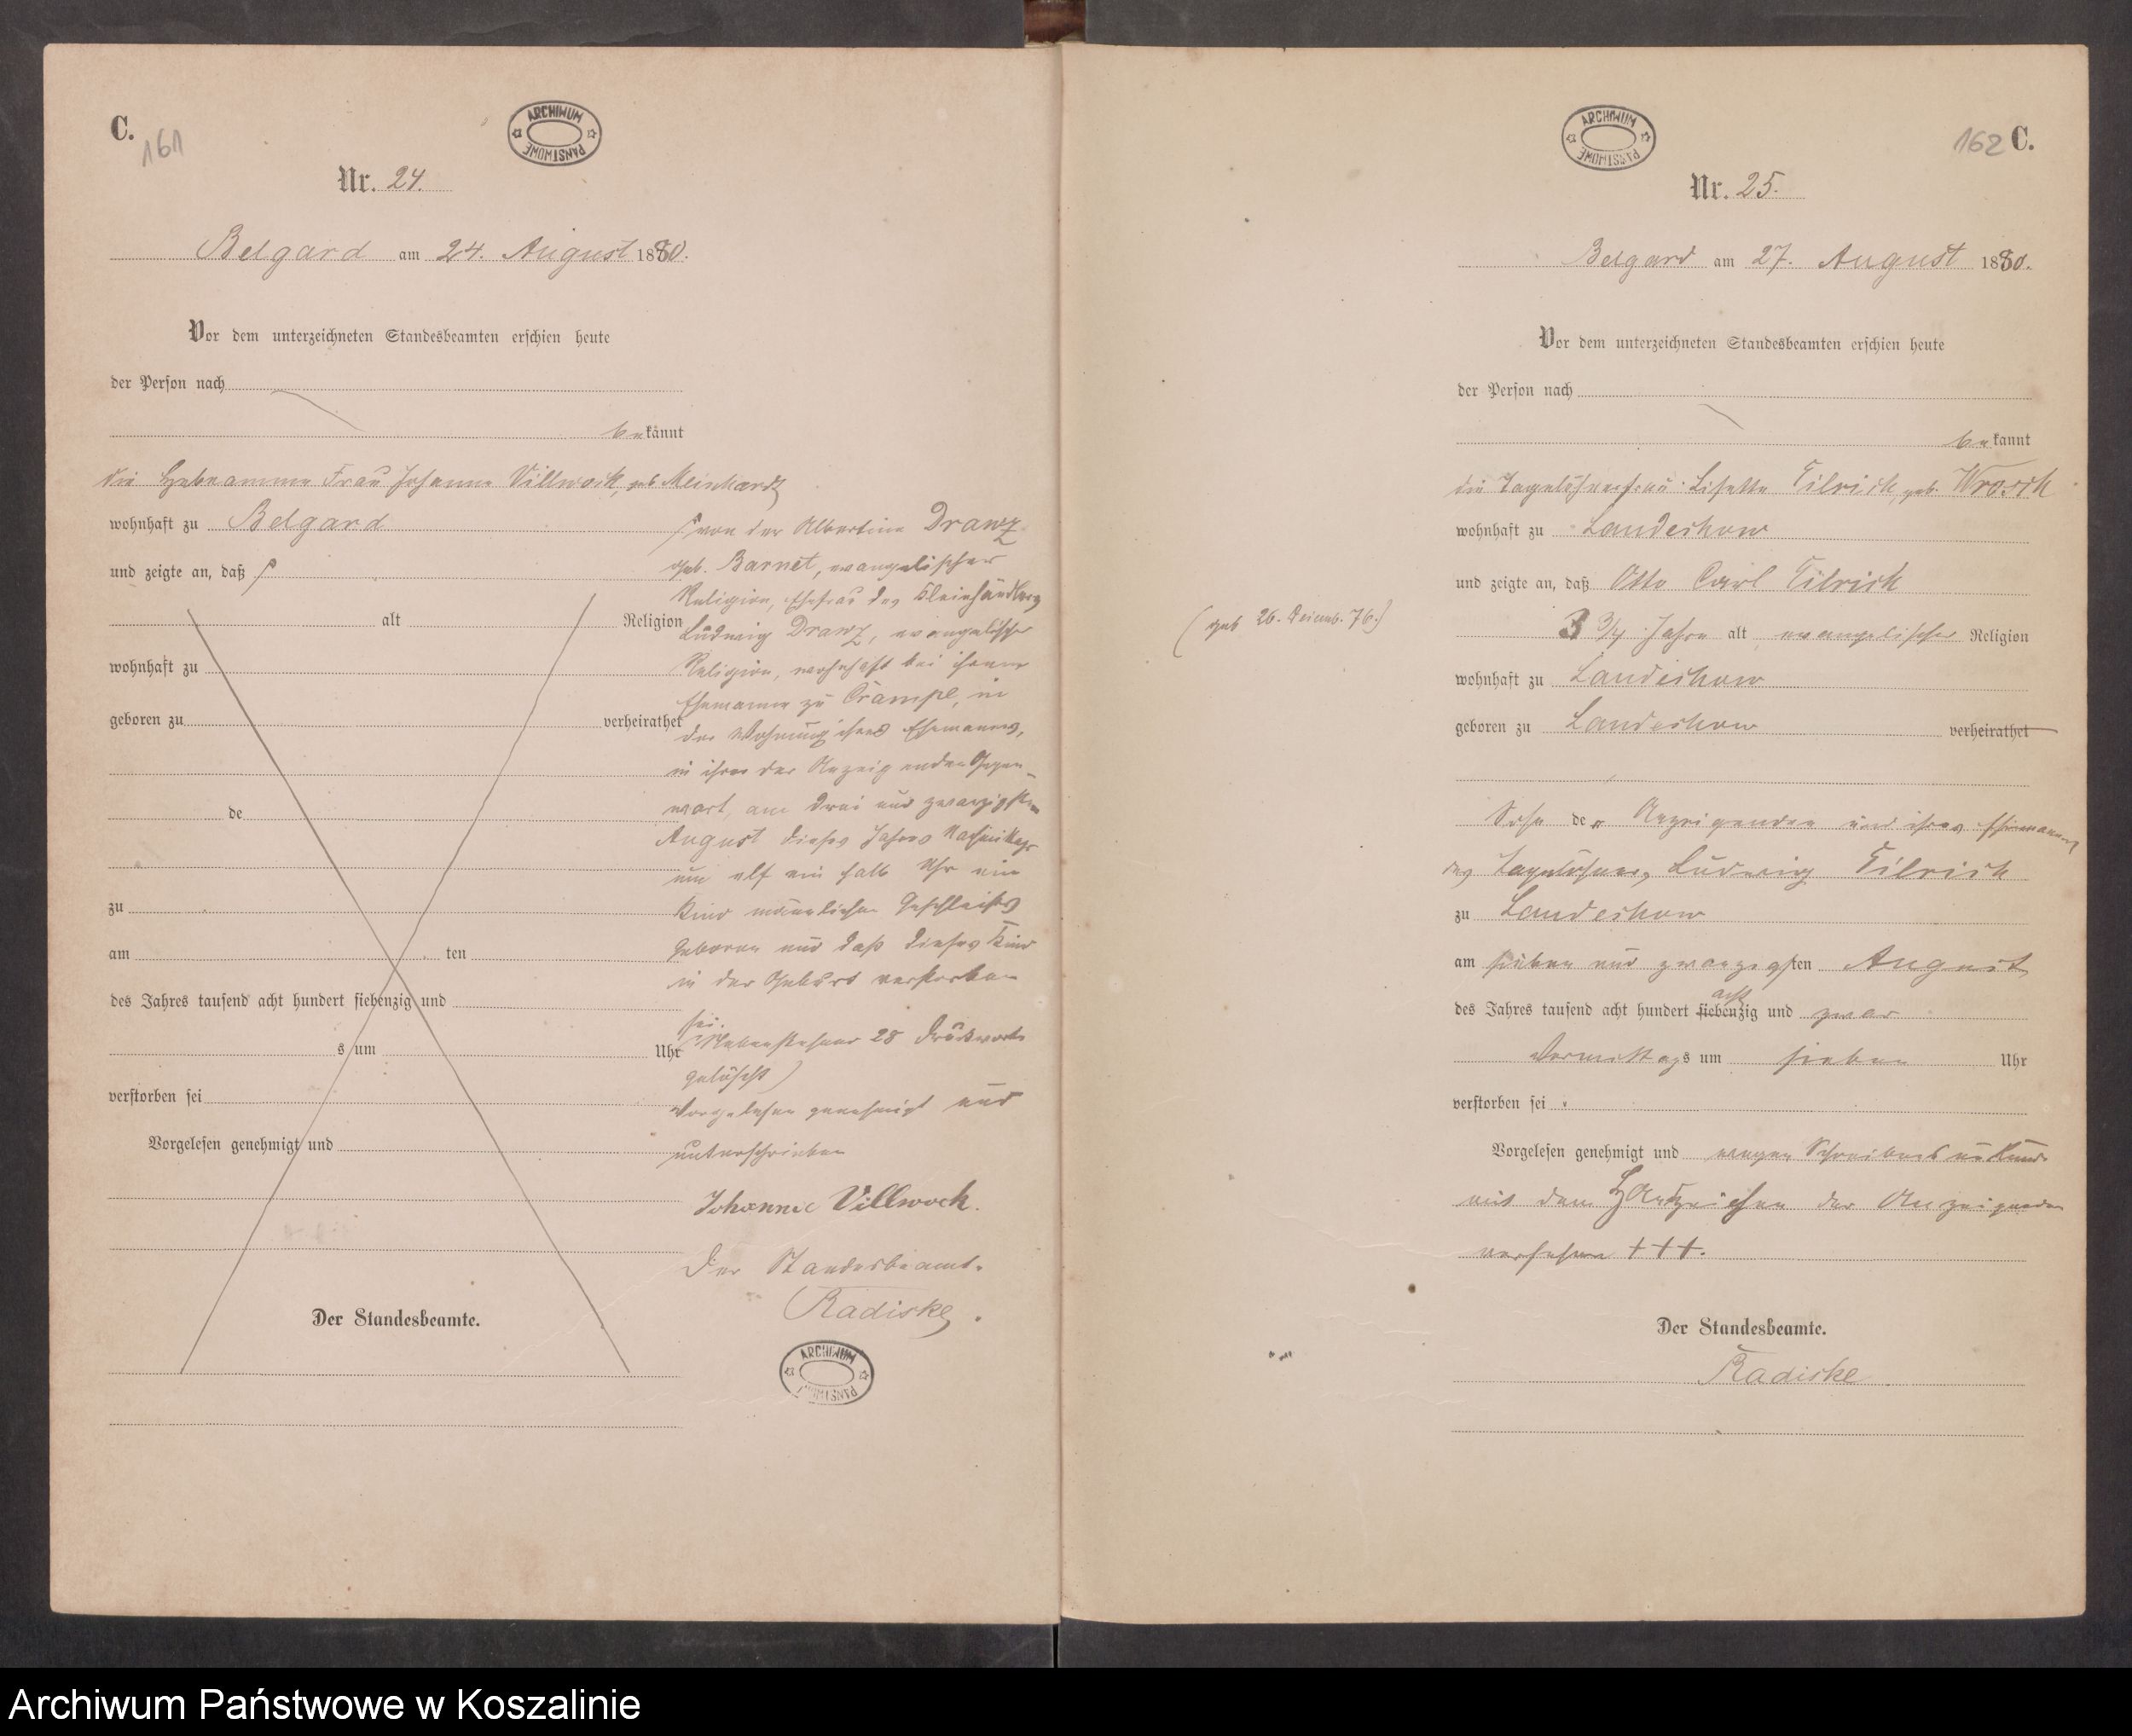 C.
161
ARCHIWUM PAŃSTWOWE
Nr. 24.
Belgard am 24. August 1880.
Vor dem unterzeichneten Standesbeamten erschien heute
der Person nach
bekannt
die Hebeamme Frau Johanne Villwock, geb. Meinhardt
wohnhaft zu Belgard
und zeigte an, daß
alt Religion
wohnhaft zu
geboren zu verheirathet
de
zu
am ten
des Jahres tausend acht hundert siebenzig und
s um Uhr
verstorben sei
Vorgelesen genehmigt und
Der Standesbeamte.
von der Albertine Drawz
geb. Barnet, evangelischer
Religion, Ehefrau des Kleinhändlers
Ludwig Drawz, evangelischer
Religion, wohnhaft bei ihrem
Ehemanne zu Crampe, in
der Wohnung ihres Ehemannes,
in ihrer der Anzeigenden Gegen-
wart, am drei und zwanzigsten
August dieses Jahres Nachmittags
um elf ein halb Uhr ein
Kind männlichen Geschlechts
geboren und daß dieses Kind
in der Geburt verstorben
sei.
28 Druckworte
gelöscht)
Vorgelesen genehmigt und
unterschrieben
Johanne Villwock.
Der Standesbeamte.
Radiske.
ARCHIWUM PAŃSTWOWE
ARCHIWUM PAŃSTWOWE
162 C.
Nr. 25.
Belgard am 27. August 1880.
Vor dem unterzeichneten Standesbeamten erschien heute
der Person nach
bekannt
die Tagelöhnerfrau Lisette Tilrick, geb. Wrosch
wohnhaft zu Landeshow
und zeigte an, daß Otto Carl Tilrick
(geb 26. Decemb. 76.)
3 3/4 Jahre alt, evangelischer Religion
wohnhaft zu Landeshow
geboren zu Landeshow verheirathet
Sohn der Anzeigenden und ihres Ehemannes
des Tagelöhners Ludwig Tilrick
zu Landeshow
am sieben und zwanzigsten August
acht
des Jahres tausend acht hundert siebenzig und zwar
Vormittags um sieben Uhr
verstorben sei.
Vorgelesen genehmigt und wegen Schreibens unkund
mit dem Handzeichen der Anzeigenden
versehen +++.
Der Standesbeamte.
Radiske
Archiwum Państwowe w Koszalinie